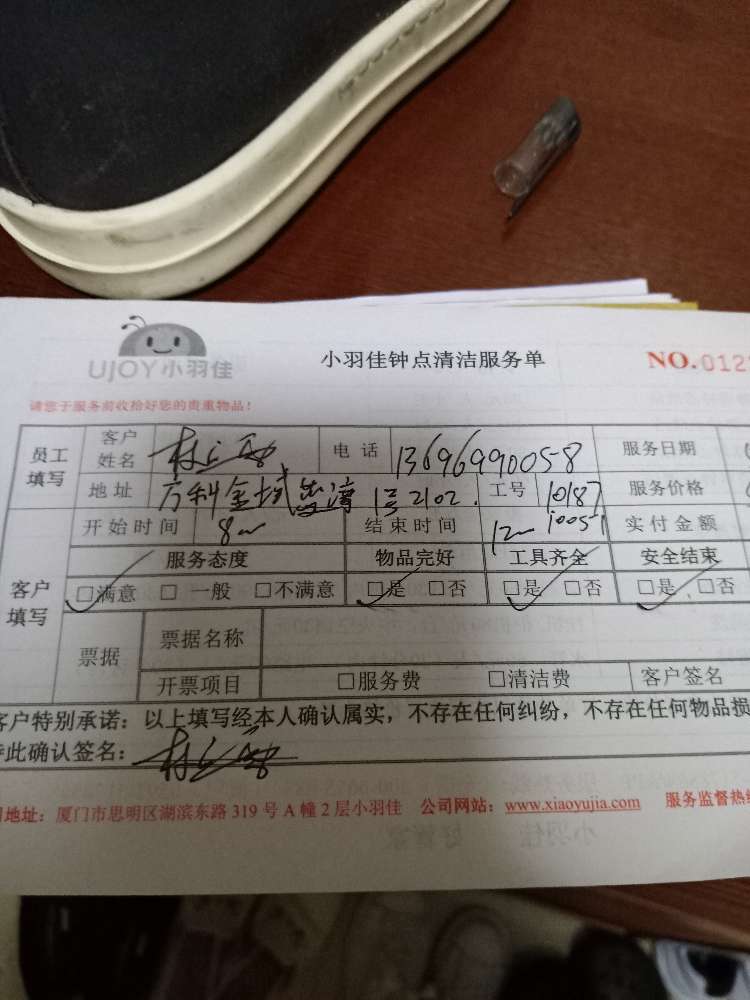 UJOY小羽佳
小羽佳钟点清洁服务单
NO.012
请您于服务前收拾好您的贵重物品!
员工填写 客户姓名 电话 13696990058 服务日期
地址 万科金域 1号2102. 工号 10187 服务价格
10051
开始时间 8 结束时间 12 实付金额
客户填写 服务态度 物品完好 工具齐全 安全结束
□满意 □一般 □不满意 □是 □否 □是 □否 □是 □否
票据 票据名称
开票项目 □服务费 □清洁费 客户签名
客户特别承诺:以上填写经本人确认属实,不存在任何纠纷,不存在任何物品损
此确认签名:
地址:厦门市思明区湖滨东路 319 号 A 幢 2 层小羽佳 公司网站:www.xiaoyujia.com 服务监督热线